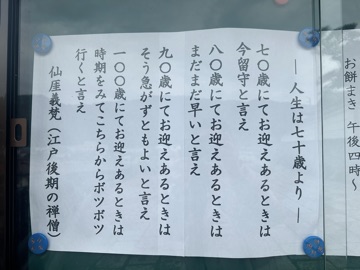 お餅まき 午後四時~
― 人生は七十歳より ―
七〇歳にてお迎えあるときは
今留守と言え
八〇歳にてお迎えあるときは
まだまだ早いと言え
九〇歳にてお迎えあるときは
そう急がずともよいと言え
一〇〇歳にてお迎えあるときは
時期をみてこちらからボツボツ
行くと言え
仙厓義梵(江戸後期の禅僧)